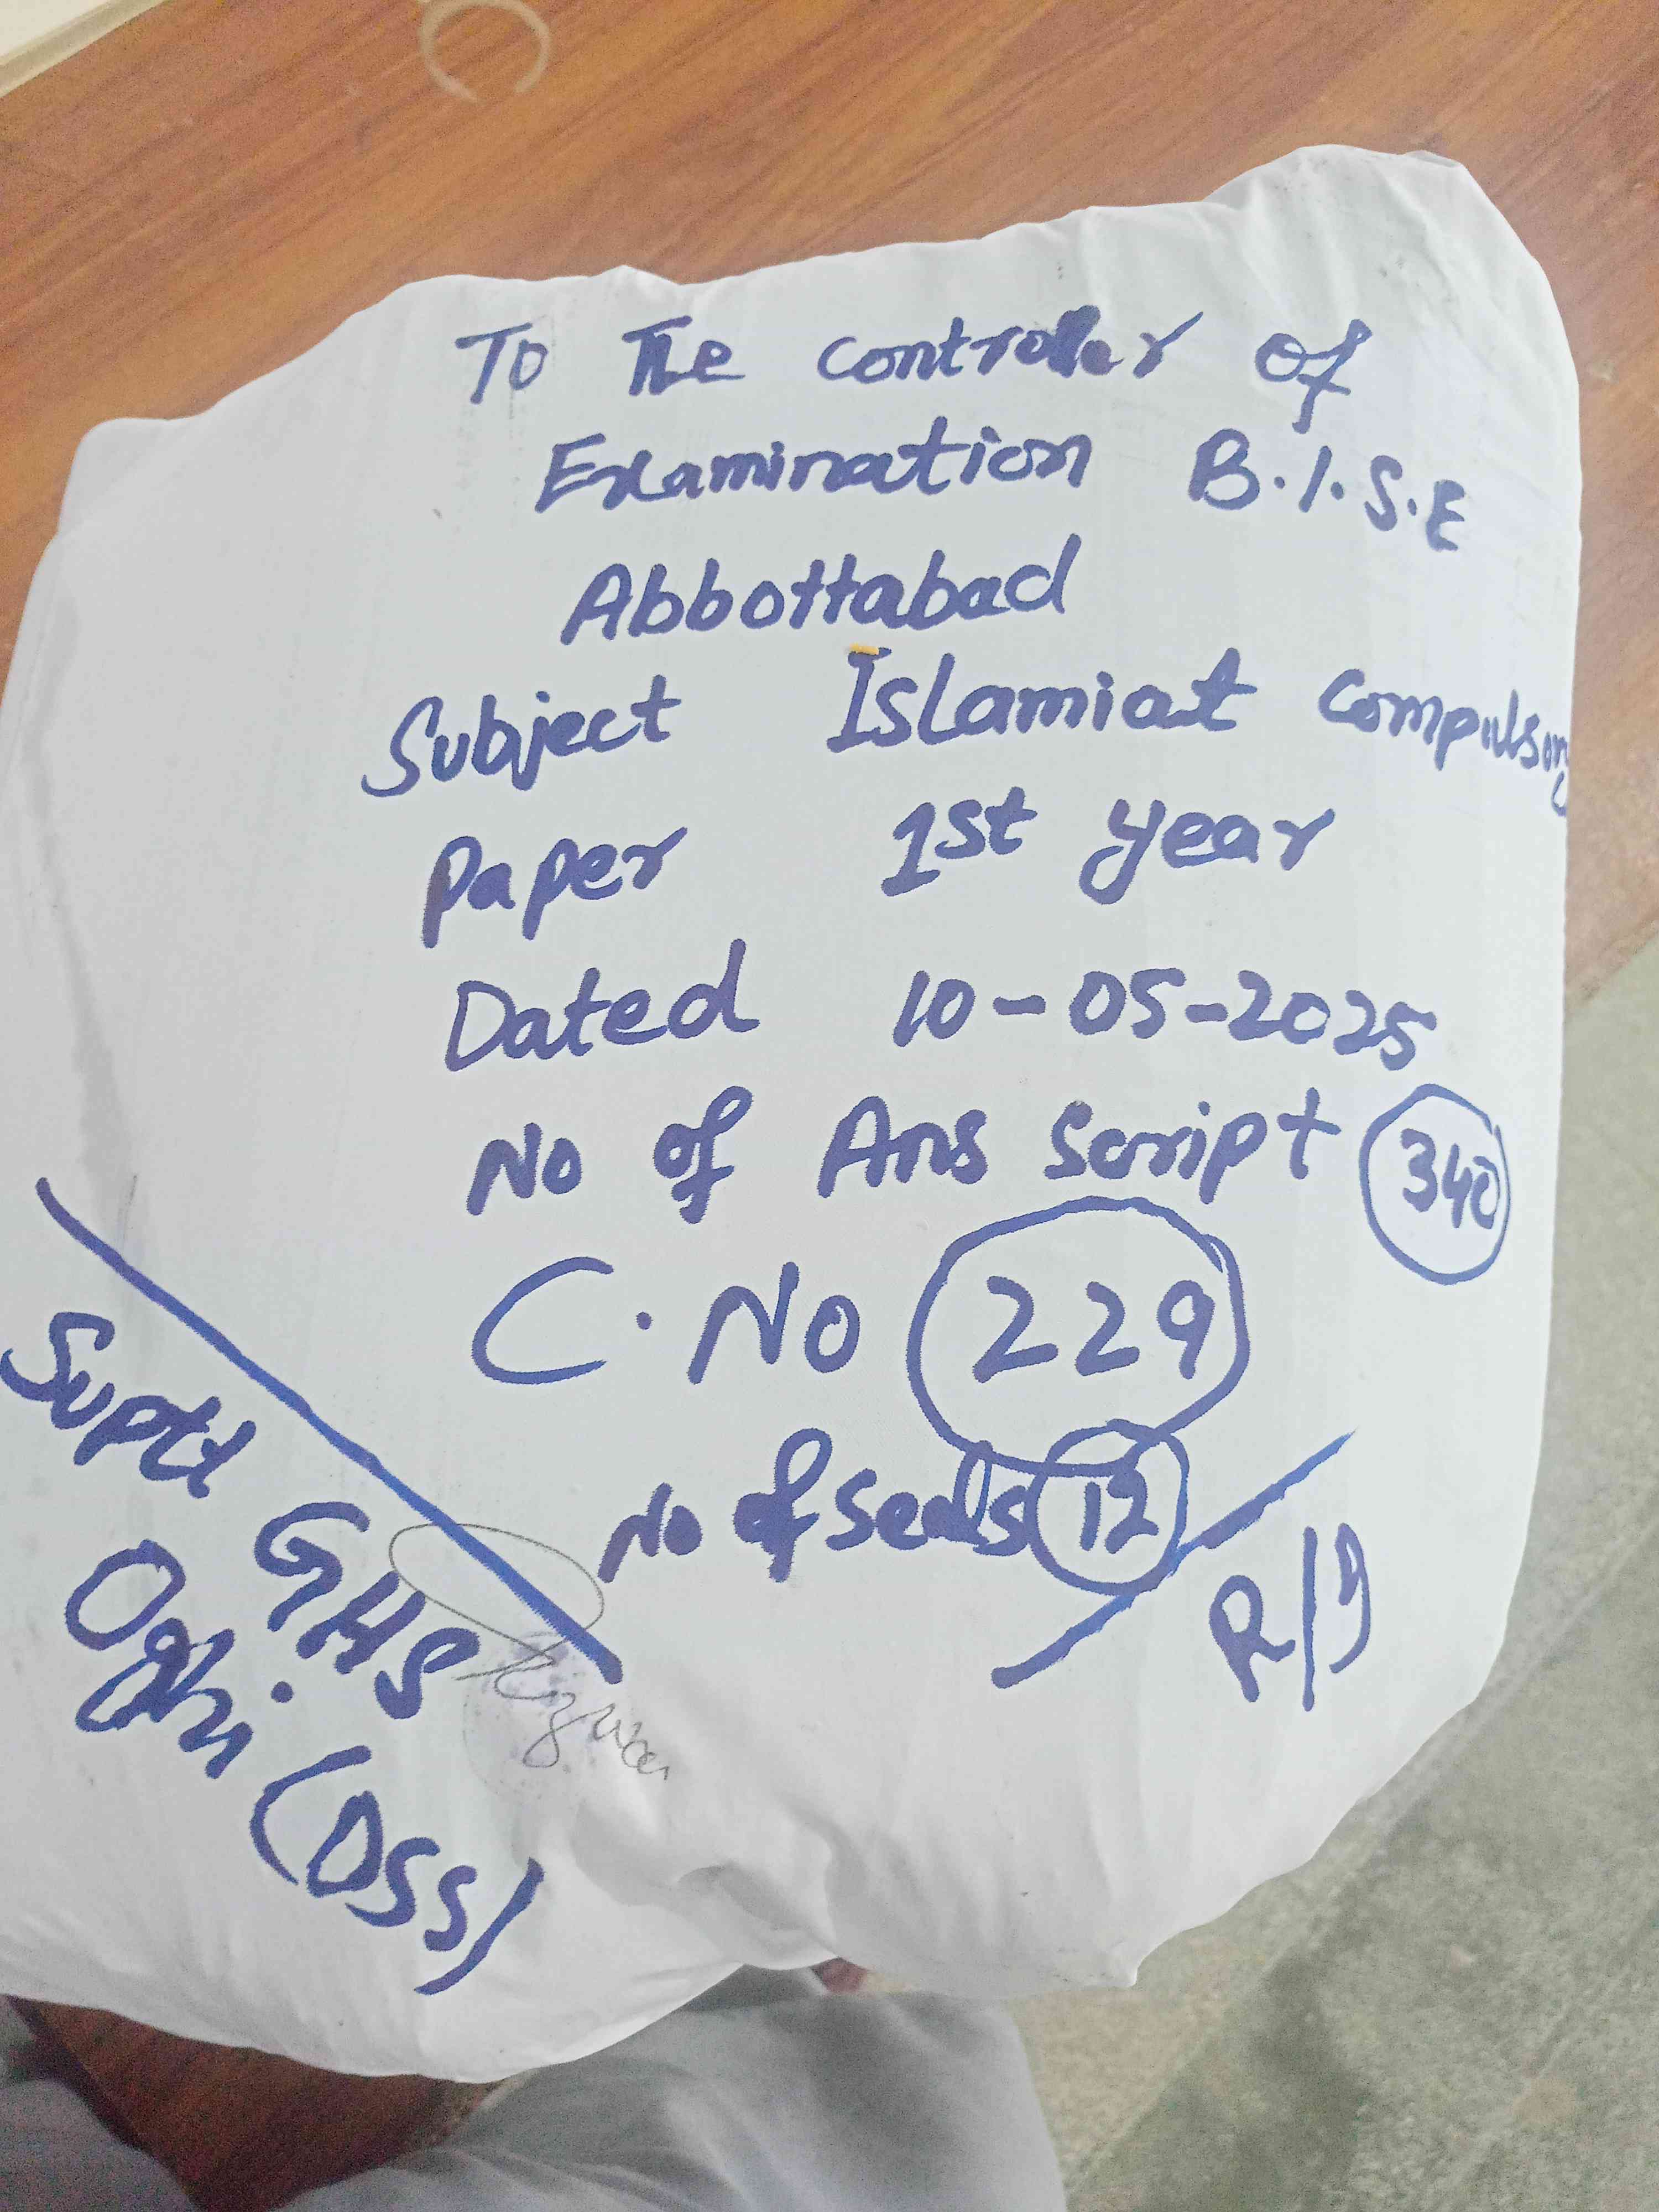 To The controller of
Examination B.I.S.E
Abbottabad
Subject Islamiat Compulsory
Paper 1st year
Dated 10-05-2025
No of Ans Script 340
C.No 229
No of seals 12
R/9
Suptt GHS
Oghi (DSS)